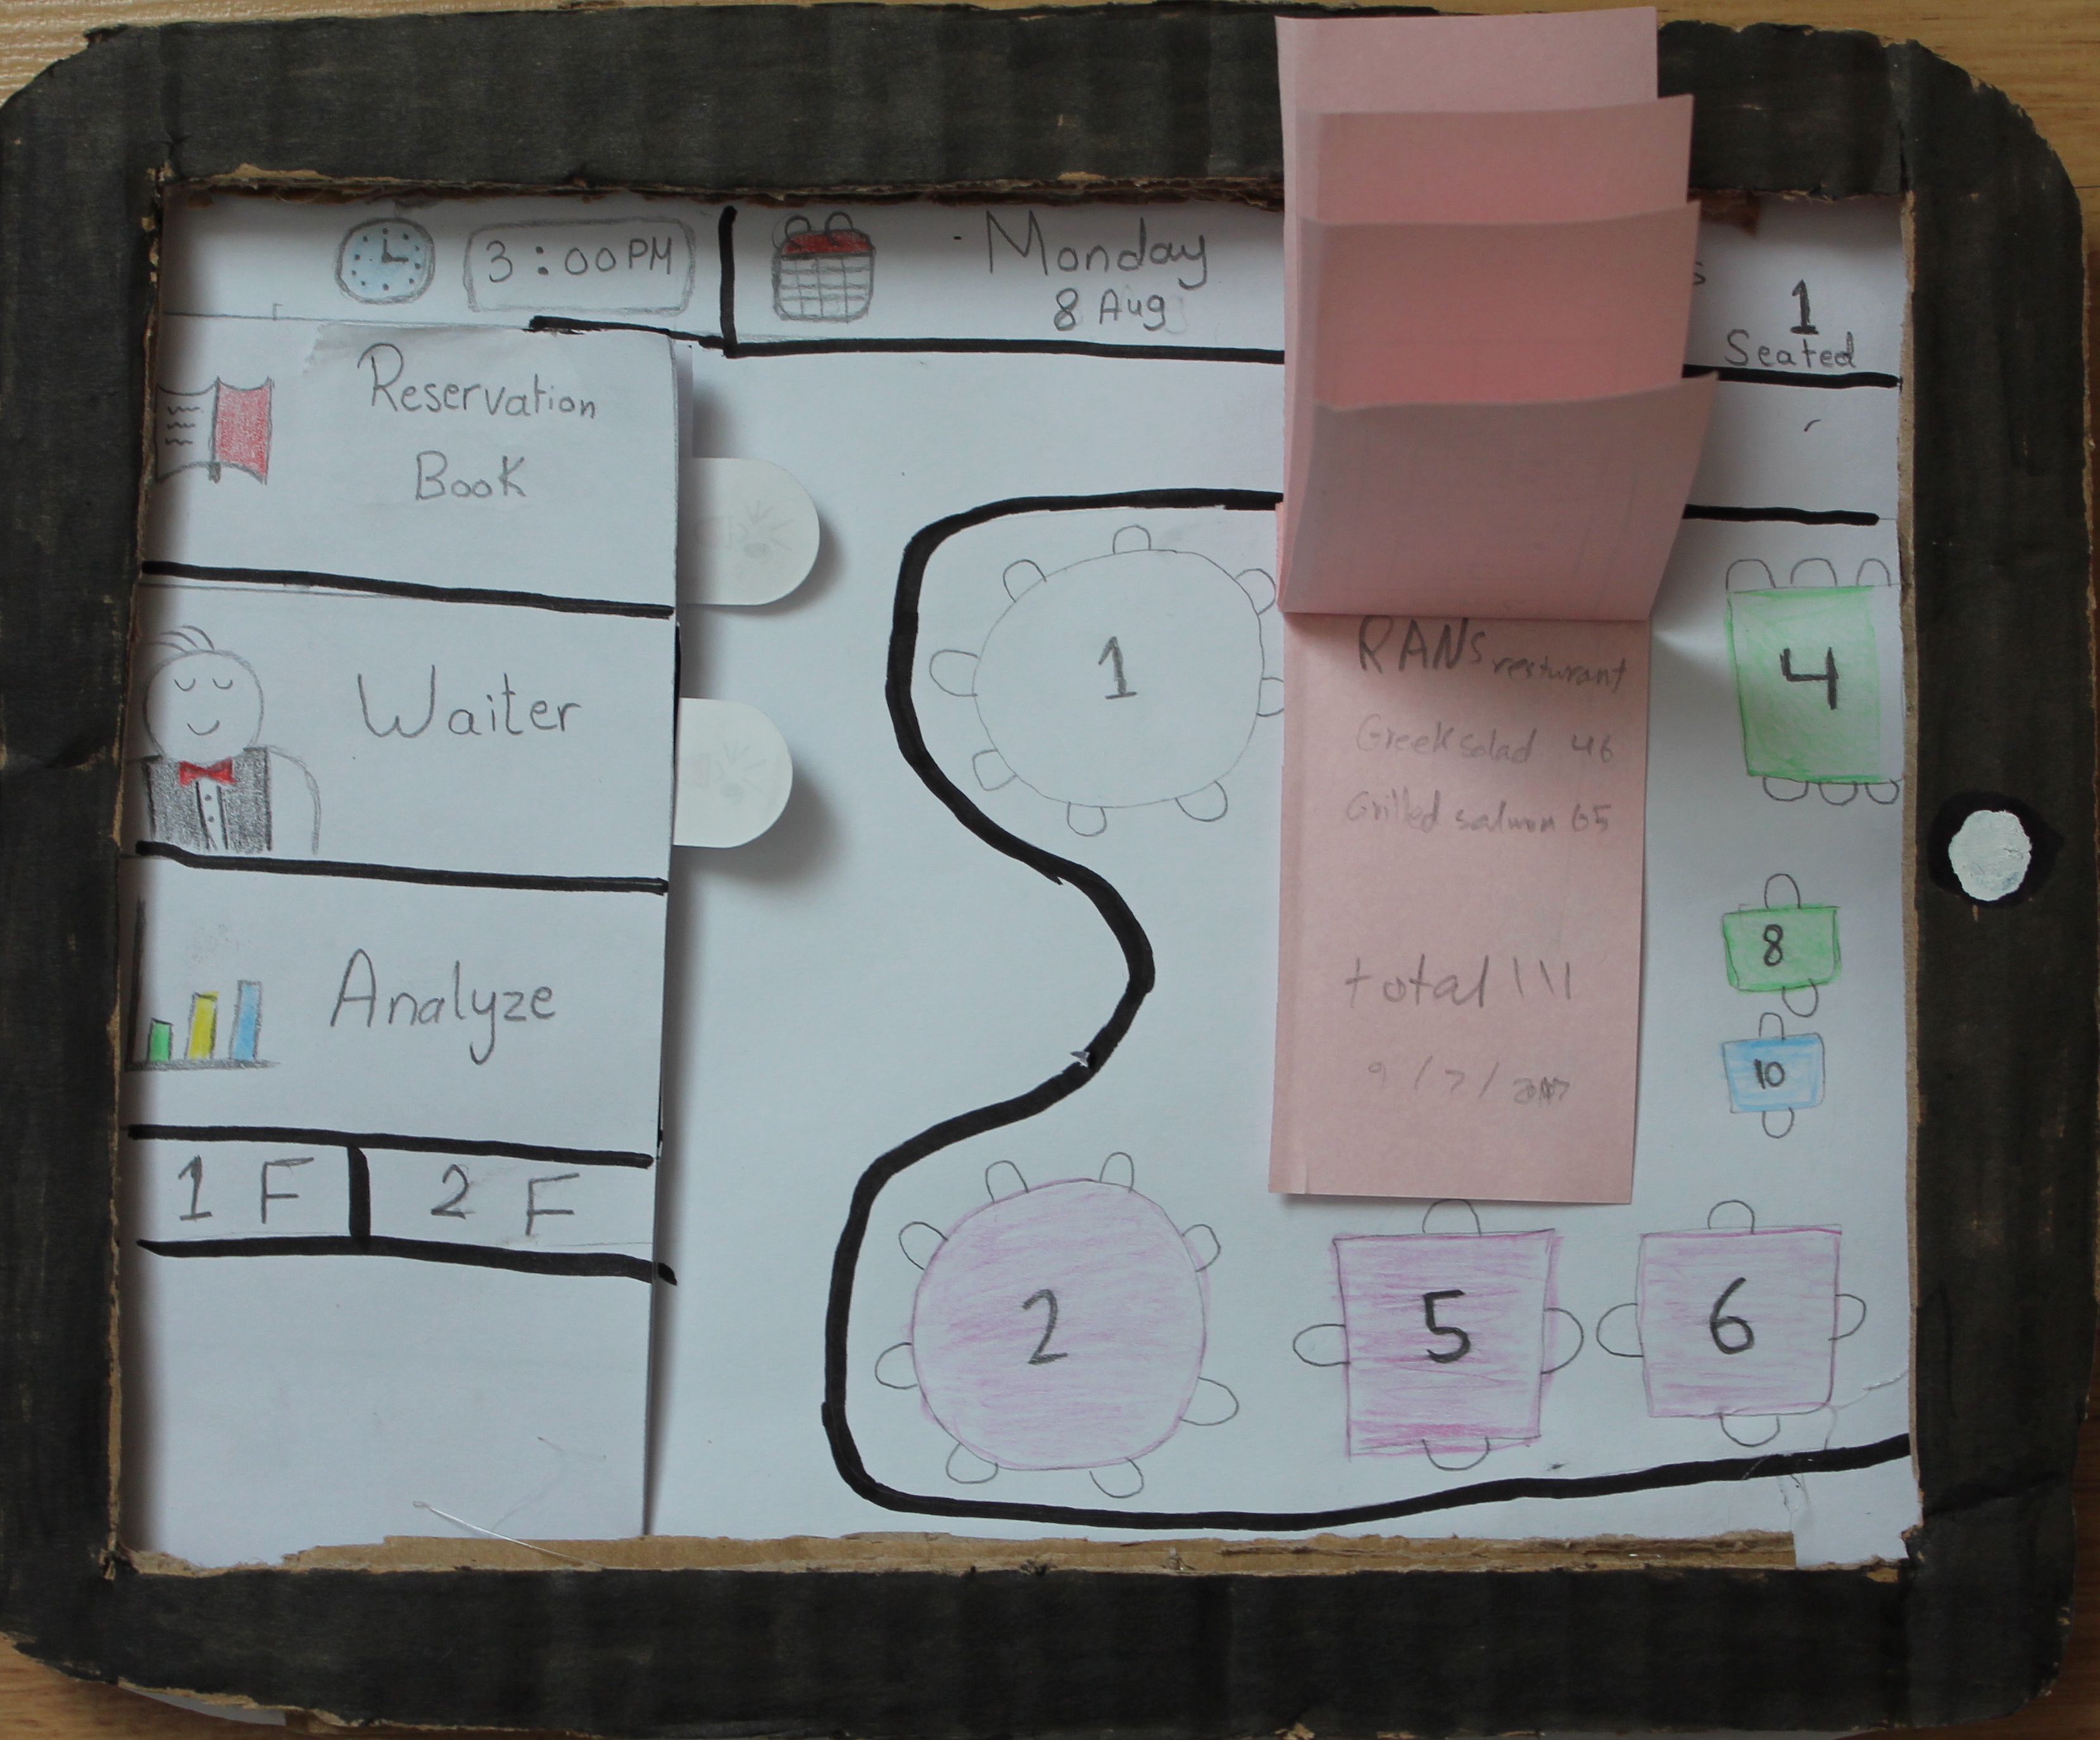 3:00PM
Monday
8 Aug
1
Seated
Reservation
Book
Waiter
Analyze
1 F
2 F
1
4
8
10
2
5
6
RANs resturant
Greek salad 46
Grilled salmon 65
total 111
9/7/2017